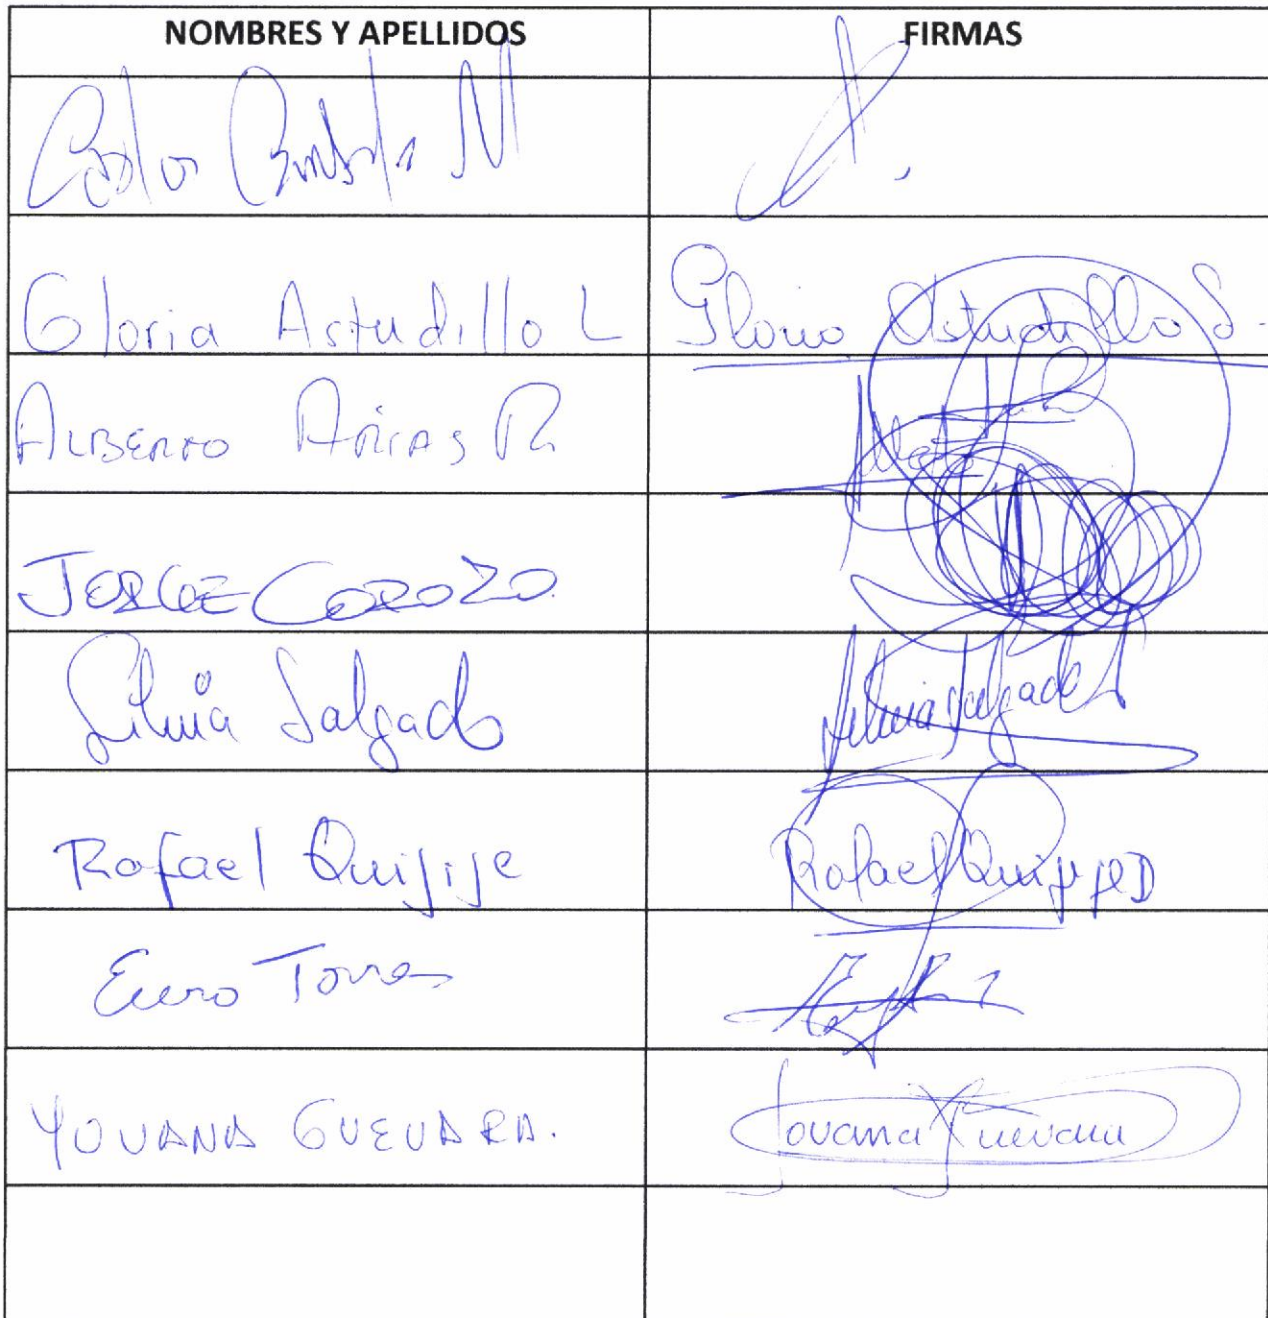 NOMBRES Y APELLIDOS FIRMAS
Carlos N
Gloria Astudillo L Gloria Astudillo L.
ALBERTO ARIAS R
JORGE COROZO
Silvia Salgado Silvia Salgado
Rafael Quijije Rafael Quijije D
Euro Torres
YOVANA GUEVARA. Yovana Guevara